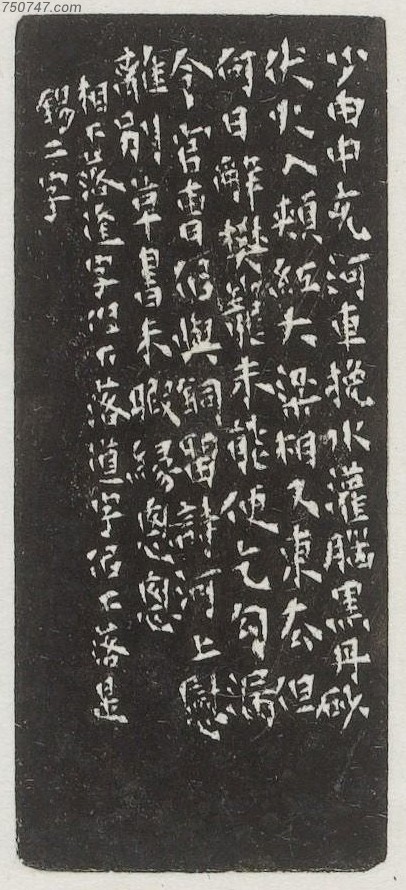 750747.com
少由中充河車挽水灌腦黑丹砂
伏火入頰紅大梁相又東去但
何日辭樊籠未能便乞句漏
令官曹似與銅留詩河上慰
離別草書未暇緣悤悤
相下落逢字但下落道字似下落是
錫二字